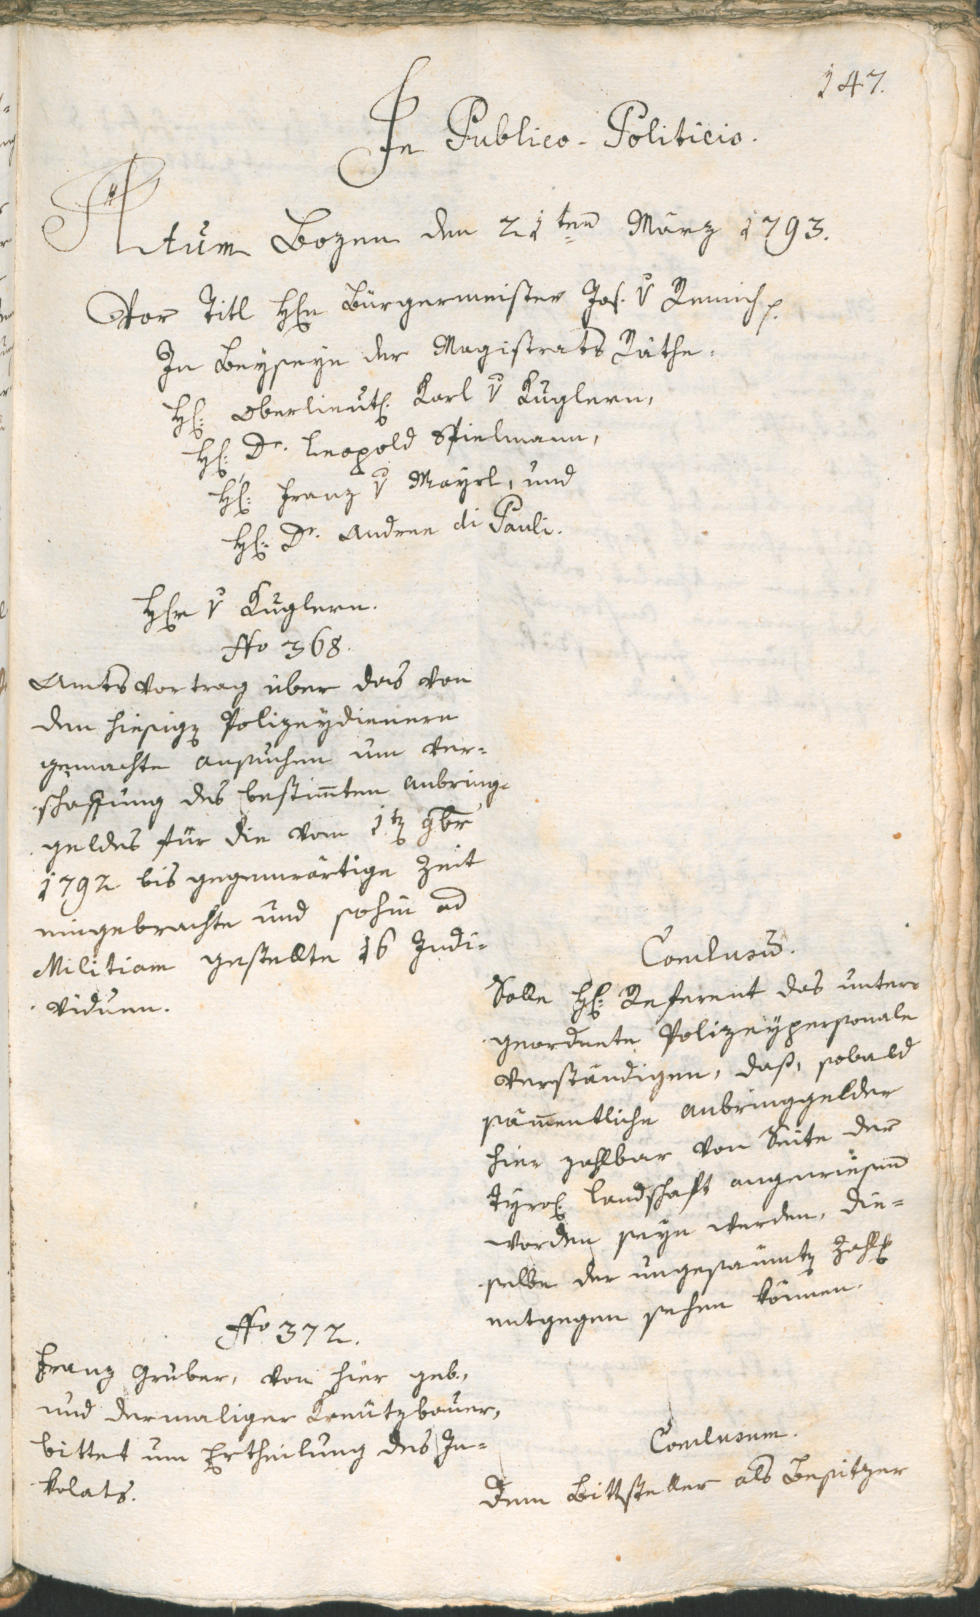 147.
In Publico-Politicis.
Actum Bozen den 21ten März 1793.
Vor Titl Hℓn Bürgermeister Jos. v Remich p.
In Beyseyn der Magistrats Räthe.
Hℓ: Oberlieutℓ: Karl v Kuglern,
Hℓ: Dr. Leopold Spielmann,
Hℓ: Franz v Mayrl, und
Hℓ: Dr. Andree di Pauli.
Hℓr v Kuglern.
No 368.
Amtsvortrag über das von
den hiesigen Polizeydienern
gemachte Ansuchen um Ver-
schaffung des bestim̄ten Anbring-
geldes für die vom 1ten 9br
1792 bis gegenwärtige Zeit
eingebrachte und sohin ad
Militiam gestellte 16 Indi-
viduen.
Conclusum̄.
Solle Hℓ: Referent das unter-
geordnete Polizeypersonale
verständigen, daß, sobald
säm̄entliche Anbringgelder
hier zahlbar von Seite der
Tyrolℓ: Landschaft angewiesen
worden seyn werden, die-
selbe der ungesäumten Zahlℓ:
entgegen sehen können.
No 372.
Franz Gruber, von hier geb.,
und dermaliger Kreutzbauer,
bittet um Ertheilung des In-
kolats.
Conclusum.
Dem Bittsteller als Besitzer